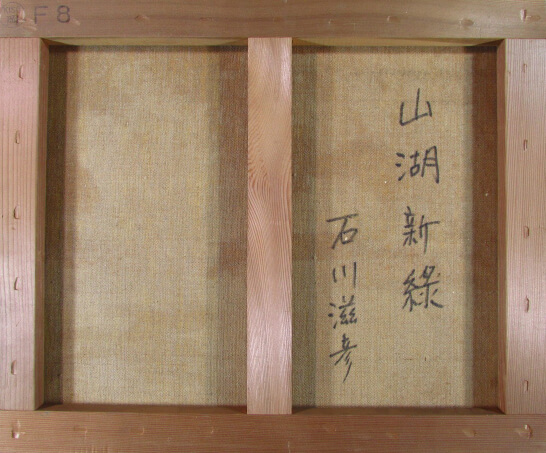 F8
山湖新緑
石川滋彦